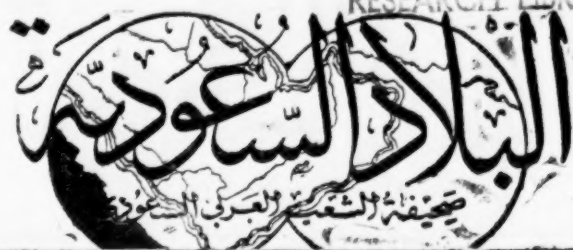 RESEARCH LIBR
البلاد السعودية
صحيفة الشعب العربي السعودي